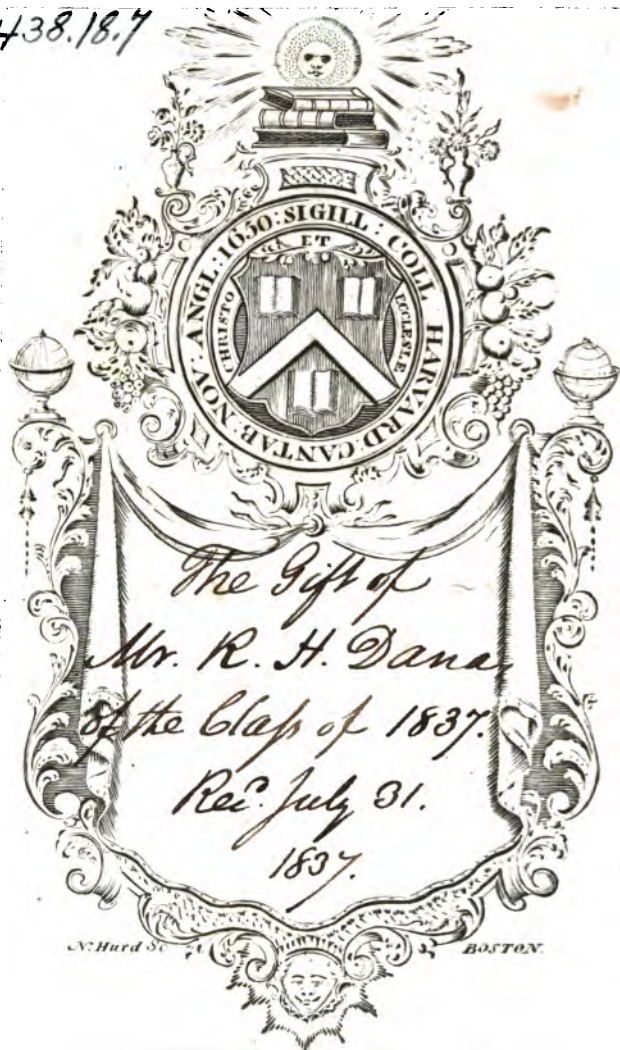 438.18.7
SIGILL : COLL HARVARD : CANTAB : NOV ANGL : 1650 :
ET
CHRISTO
ECCLESIÆ
The Gift of
Mr. R. H. Dana
of the Claſs of 1837.
Rec.d July 31.
1837.
N. Hurd Sc
BOSTON.